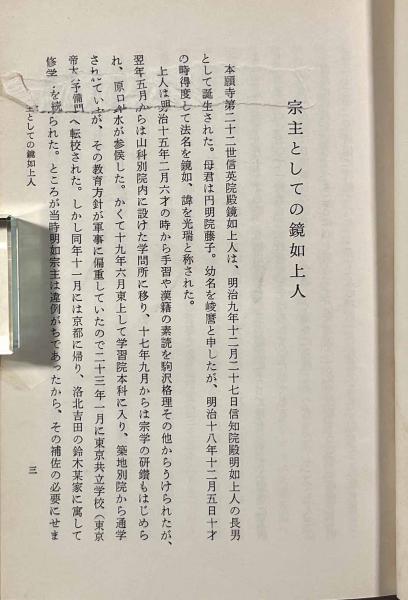 宗主としての鏡如上人
本願寺第二十二世信英院殿鏡如上人は、明治九年十二月二十七日信知院殿明如上人の長男
として誕生された。母君は円明院藤子。幼名を峻麿と申したが、明治十八年十二月五日十才
の時得度して法名を鏡如、諱を光瑞と称された。
上人は明治十五年二月六才の時から手習や漢籍の素読を駒沢格理その他からうけられたが、
翌年五月からは山科別院内に設けた学問所に移り、十七年九月からは宗学の研鑽もはじめら
れ、原口針水が参候した。かくて十九年六月東上して学習院本科に入り、築地別院から通学
されていたが、その教育方針が軍事に偏重していたので二十三年一月に東京共立学校(東京
帝大予備門)へ転校された。しかし同年十一月には京都に帰り、洛北吉田の鈴木某家に寓して
修学を続けられた。ところが当時明如宗主は違例がちであったから、その補佐の必要にせま
宗主としての鏡如上人
三